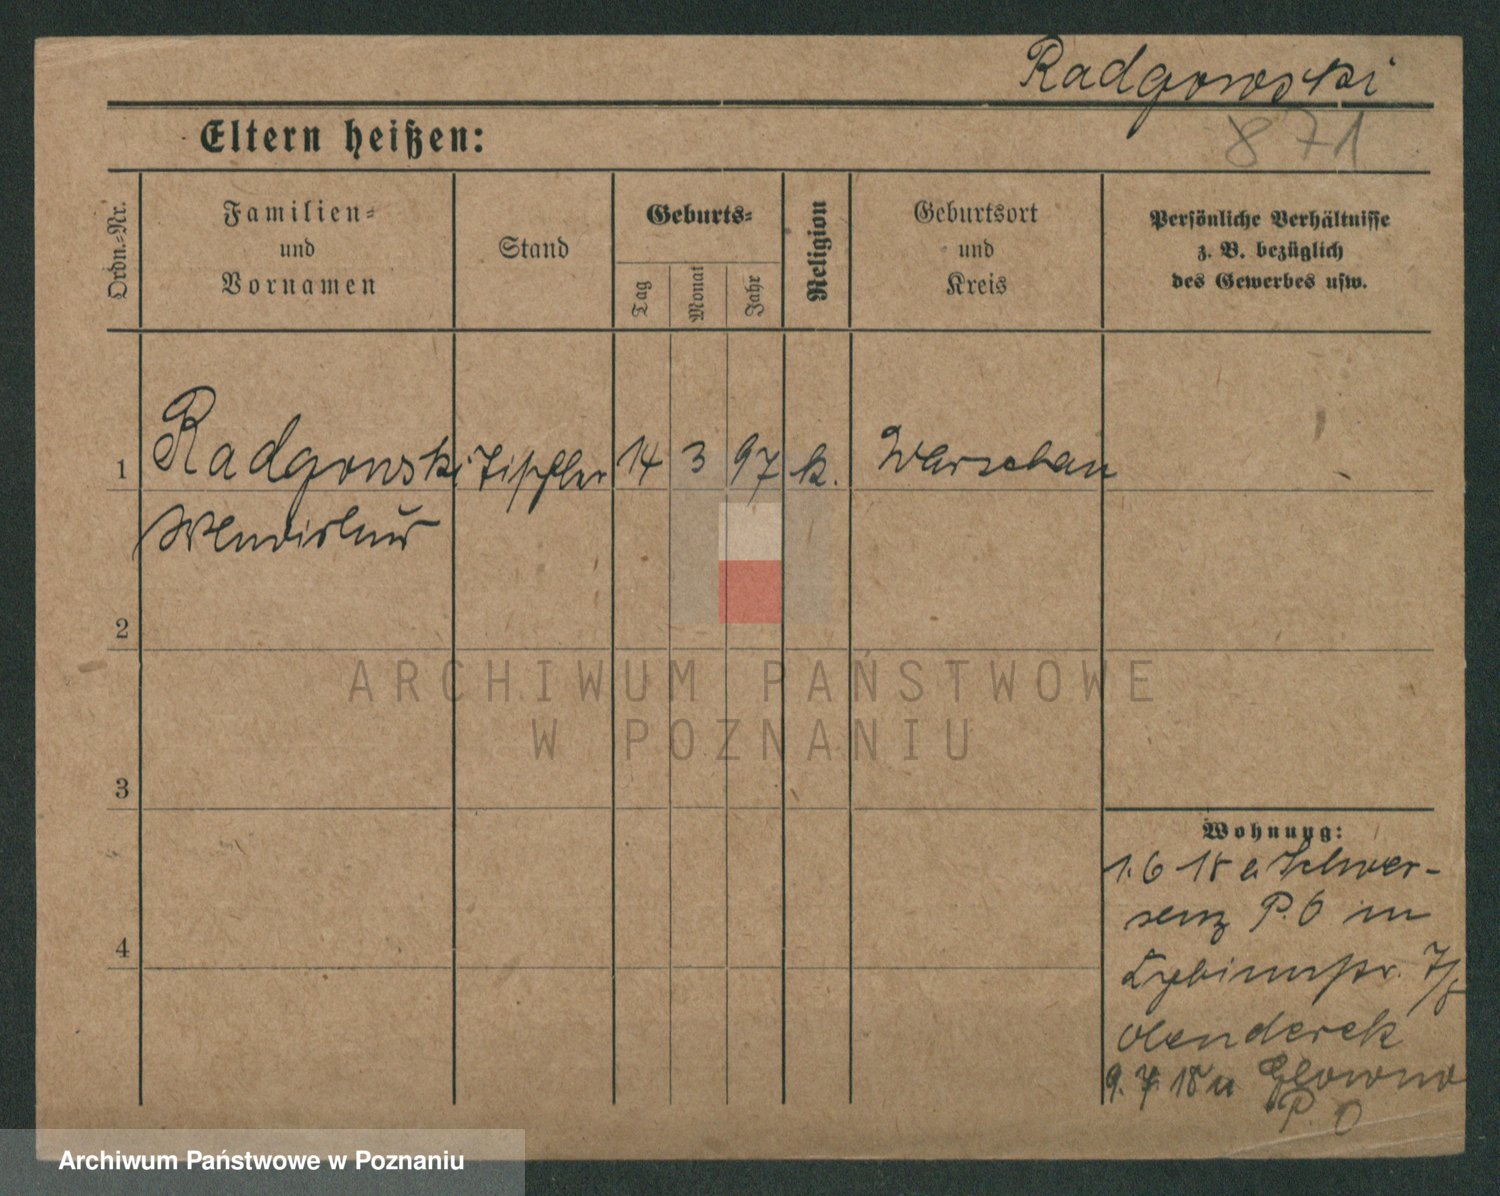 Radgowski
871
Eltern heißen:
Ordn.-Nr.
Familien-
und
Vornamen
Stand
Geburts-
Tag
Monat
Jahr
Religion
Geburtsort
und
Kreis
Persönliche Verhältnisse
z. B. bezüglich
des Gewerbes usw.
1 Radgowski Tischler 14 3 97 k. Warschau
2
3
4
Wohnung:
1.6 18 a. Schwer-
senz P. 6 in
7/8
9. 7. 18 n Glowno
P. O
ARCHIWUM PAŃSTWOWE
W POZNANIU
Archiwum Państwowe w Poznaniu